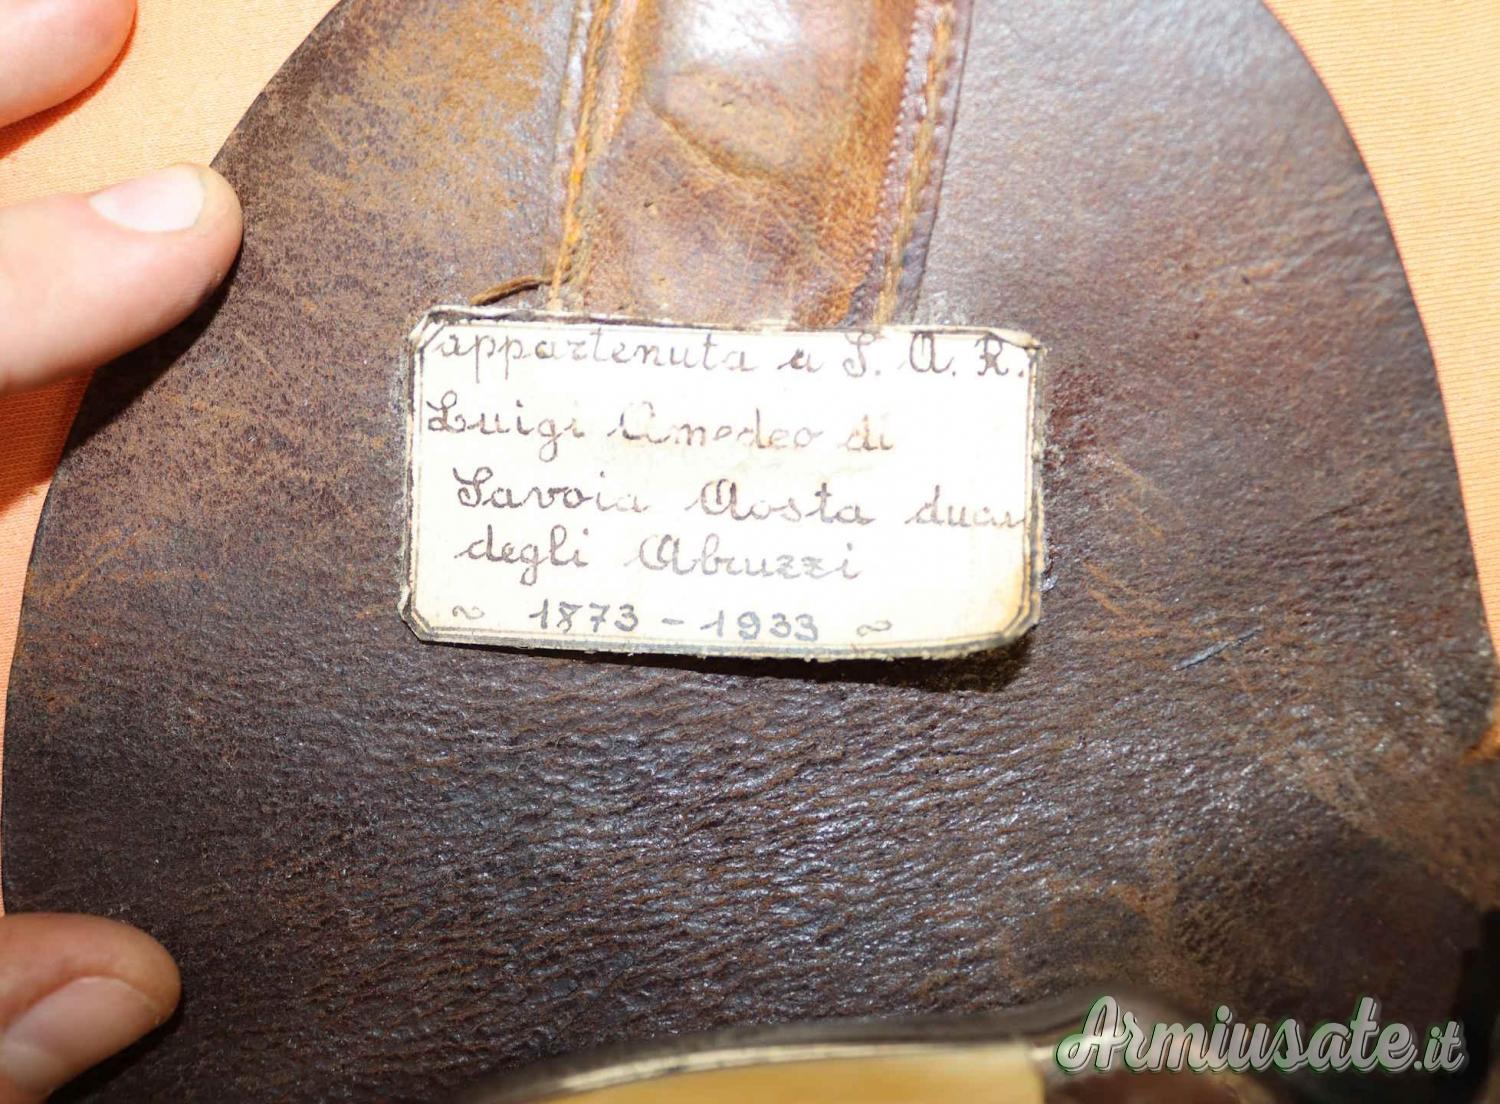 appartenuta a S. A. R.
Luigi Amedeo di
Savoia Aosta duca
degli Abruzzi
~ 1873 - 1933 ~
Armiusate.it